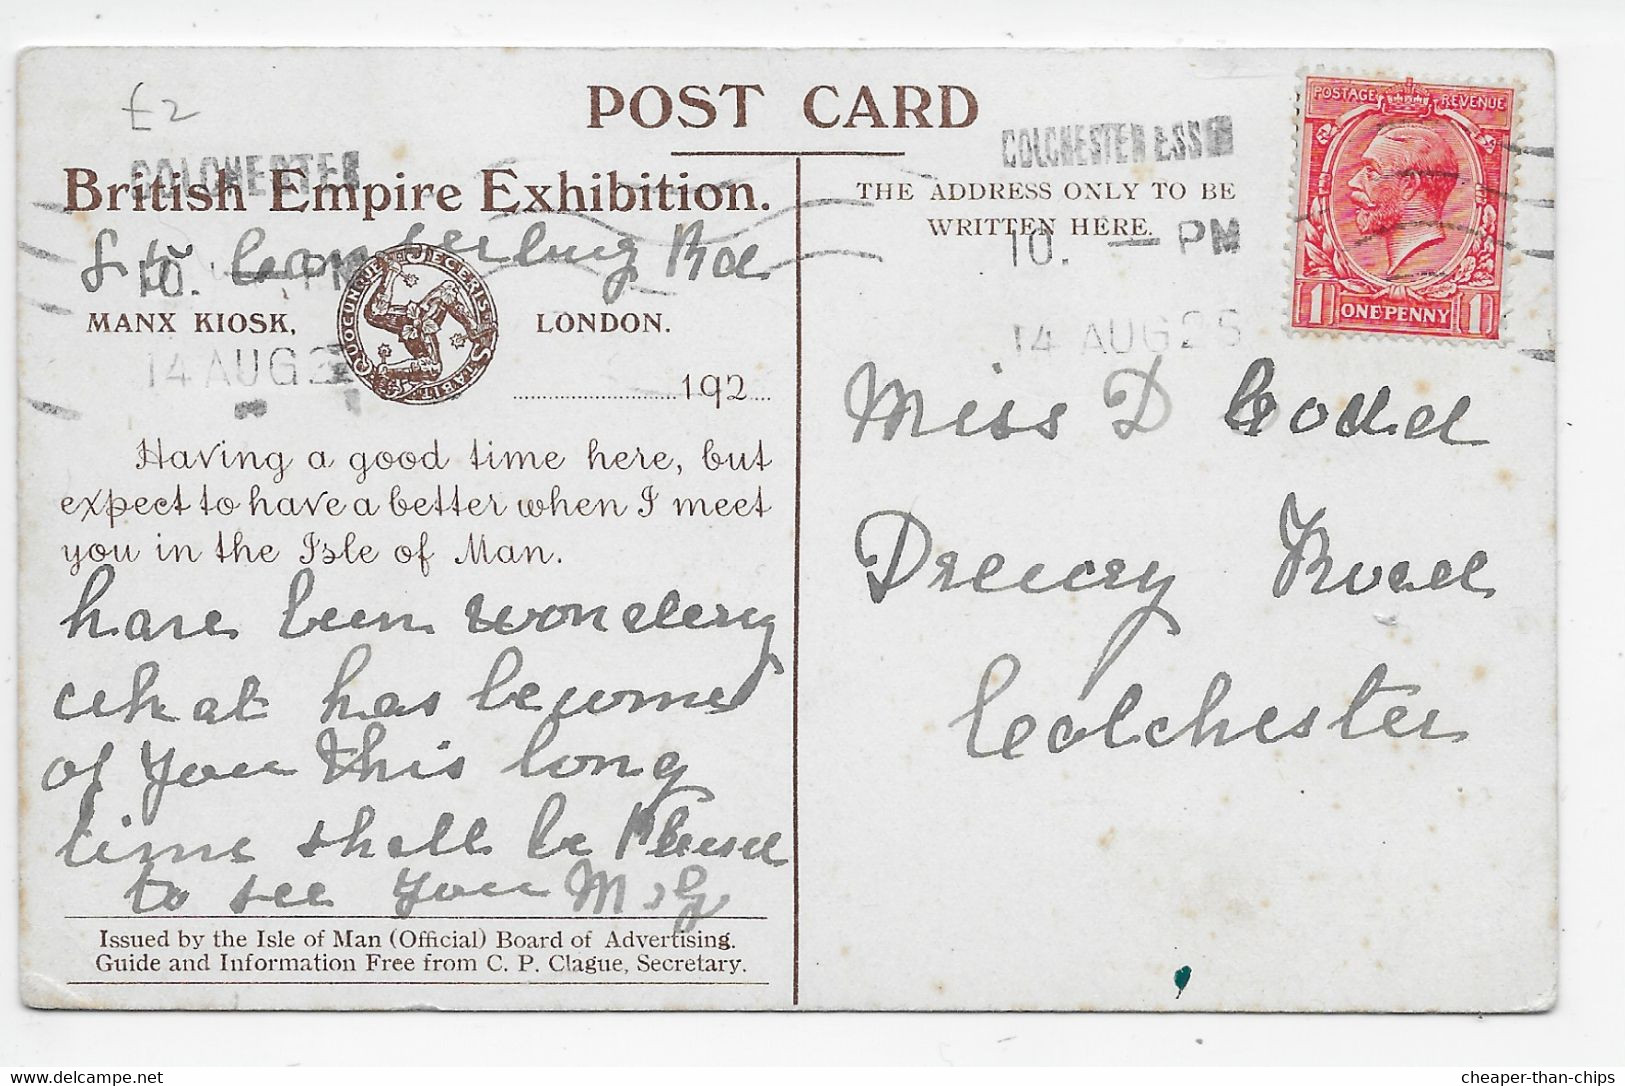 £2
POST CARD
COLCHESTER
COLCHESTER ESSEX
British Empire Exhibition.
THE ADDRESS ONLY TO BE
WRITTEN HERE.
POSTAGE REVENUE
ONE PENNY
1 1
10. — PM
10. — PM
Rd
MANX KIOSK, LONDON.
QUOCUNQUE JECERIS STABIT
14 AUG 2
14 AUG 25
192
Miss D Codd
Having a good time here, but
expect to have a better when I meet
you in the Isle of Man.
Drewry Road
have been wondering
what has become
Colchester
of you this long
time shall be Pleased
to see you M
Issued by the Isle of Man (Official) Board of Advertising.
Guide and Information Free from C. P. Clague, Secretary.
Delcampe.net
cheaper-than-chips